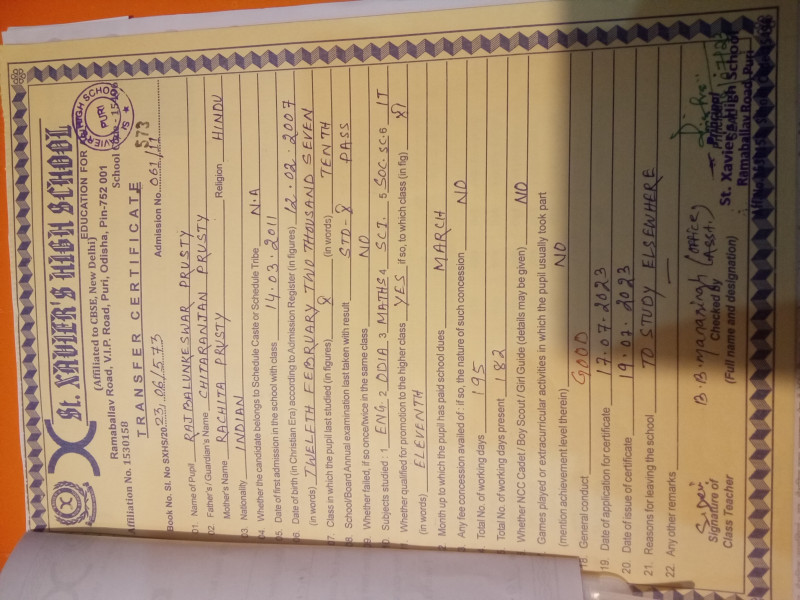 St. XAVIER'S HIGH SCHOOL
(Affiliated to CBSE, New Delhi)
EDUCATION FOR
Ramaballav Road, V.I.P. Road, Puri, Odisha, Pin-752 001
Affiliation No. 1530158
School
TRANSFER CERTIFICATE
573
Book No. Sl. No SXHS/2023/06/573
Admission No. 061/11
01. Name of Pupil RAJBALUNKESWAR PRUSTY
02. Father's / Guardian's Name CHITARANJAN PRUSTY
Mother's Name RACHITA PRUSTY Religion HINDU
03. Nationality INDIAN
04. Whether the candidate belongs to Schedule Caste or Schedule Tribe N.A
05. Date of first admission in the school with class 14.03.2011
06. Date of birth (in Christian Era) according to Admission Register (in figures) 12.02.2007
(in words) TWELETH FEBRUARY TWO THOUSAND SEVEN
07. Class in which the pupil last studied (in figures) X (in words) TENTH
08. School/Board Annual examination last taken with result STD-X PASS
9. Whether failed, if so once/twice in the same class NO
0. Subjects studied : 1 ENG. 2 ODIA 3 MATHS 4 SCI. 5 SOC.SC. 6 IT
Whether qualified for promotion to the higher class YES if so, to which class (in fig) XI
(in words) ELEVENTH
2. Month up to which the pupil has paid school dues MARCH
Any fee concession availed of : if so, the nature of such concession NO
Total No. of working days 195
Total No. of working days present 182
Whether NCC Cadet / Boy Scout / Girl Guide (details may be given) NO
Games played or extracurricular activities in which the pupil usually took part
(mention achievement level therein) NO
18. General conduct GOOD
19. Date of application for certificate 17.07.2023
20. Date of issue of certificate 19.07.2023
21. Reasons for leaving the school TO STUDY ELSEWHERE
22. Any other remarks —
Signature of
Class Teacher
B.B. Manasingh (Office Asst.)
Checked by
(Full name and designation)
Principal
St. Xavier's High School
Ramaballav Road, Puri